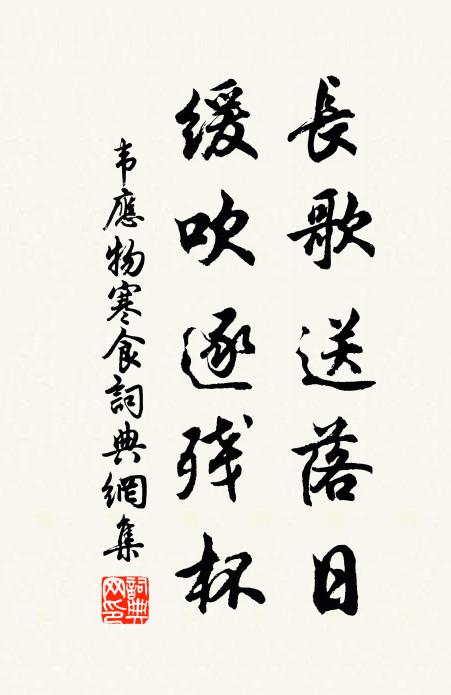 長歌送落日
緩吹逐残杯
韦應物寒食詞典網集
詞典網印